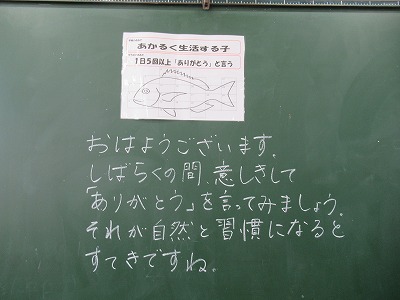 あかるく生活する子
1日5回以上「ありがとう」と言う
おはようございます。
しばらくの間、意しきして
「ありがとう」を言ってみましょう。
それが自然と習慣になると
すてきですね。